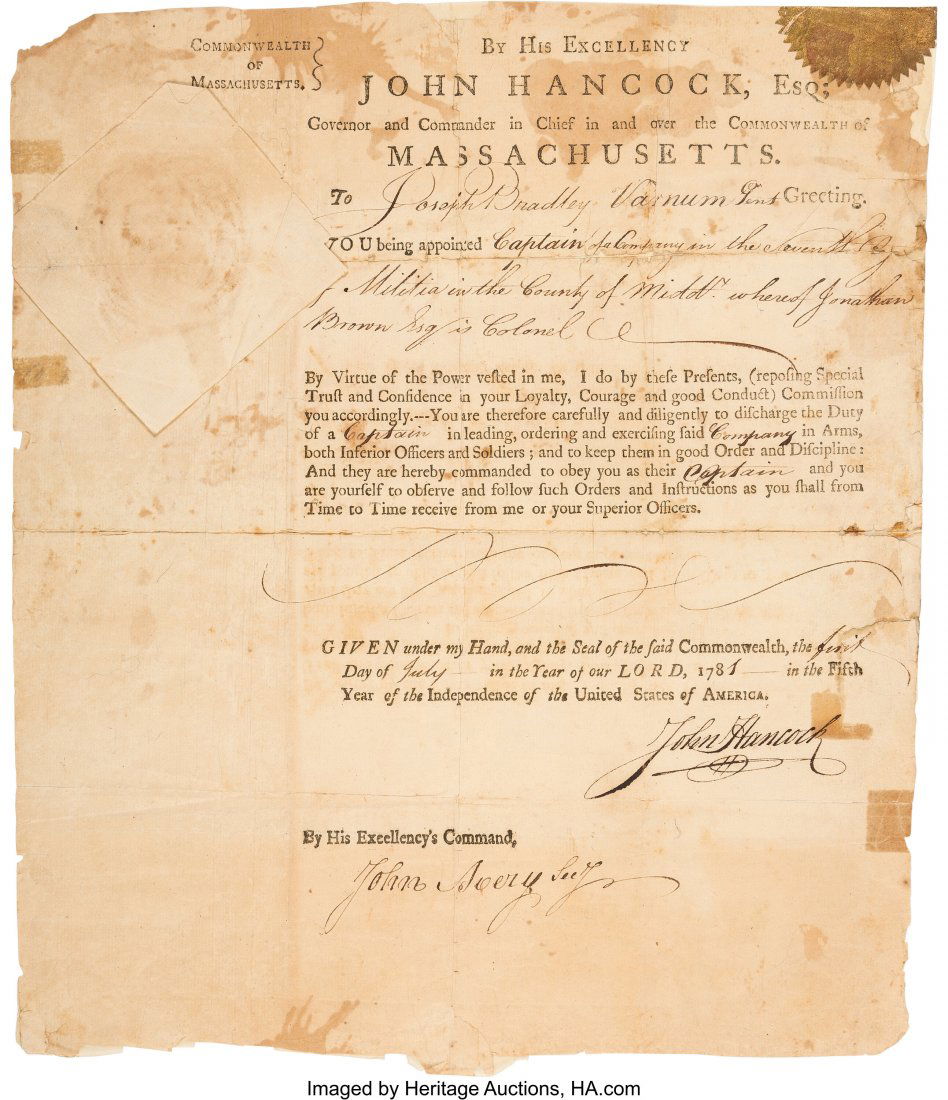 COMMONWEALTH
OF
MASSACHUSETTS.
BY HIS EXCELLENCY
JOHN HANCOCK, ESQ;
Governor and Commander in Chief in and over the COMMONWEALTH of
MASSACHUSETTS.
To Joseph Bradley Varnum Gent Greeting.
YOU being appointed Captain of a Company in the Seventh
Militia in the County of Middx. whereof Jonathan
Brown Esq is Colonel
By Virtue of the Power veſted in me, I do by theſe Preſents, (repoſing Special
Truſt and Confidence in your Loyalty, Courage and good Conduct) Commiſſion
you accordingly.---You are therefore carefully and diligently to diſcharge the Duty
of a Captain in leading, ordering and exerciſing ſaid Company in Arms,
both Inferior Officers and Soldiers; and to keep them in good Order and Diſcipline:
And they are hereby commanded to obey you as their Captain and you
are yourſelf to obſerve and follow ſuch Orders and Inſtructions as you ſhall from
Time to Time receive from me or your Superior Officers.
GIVEN under my Hand, and the Seal of the ſaid Commonwealth, the first
Day of July in the Year of our LORD, 1781 in the Fifth
Year of the Independence of the United States of AMERICA.
John Hancock
By His Excellency's Command,
John Avery Secy
Imaged by Heritage Auctions, HA.com